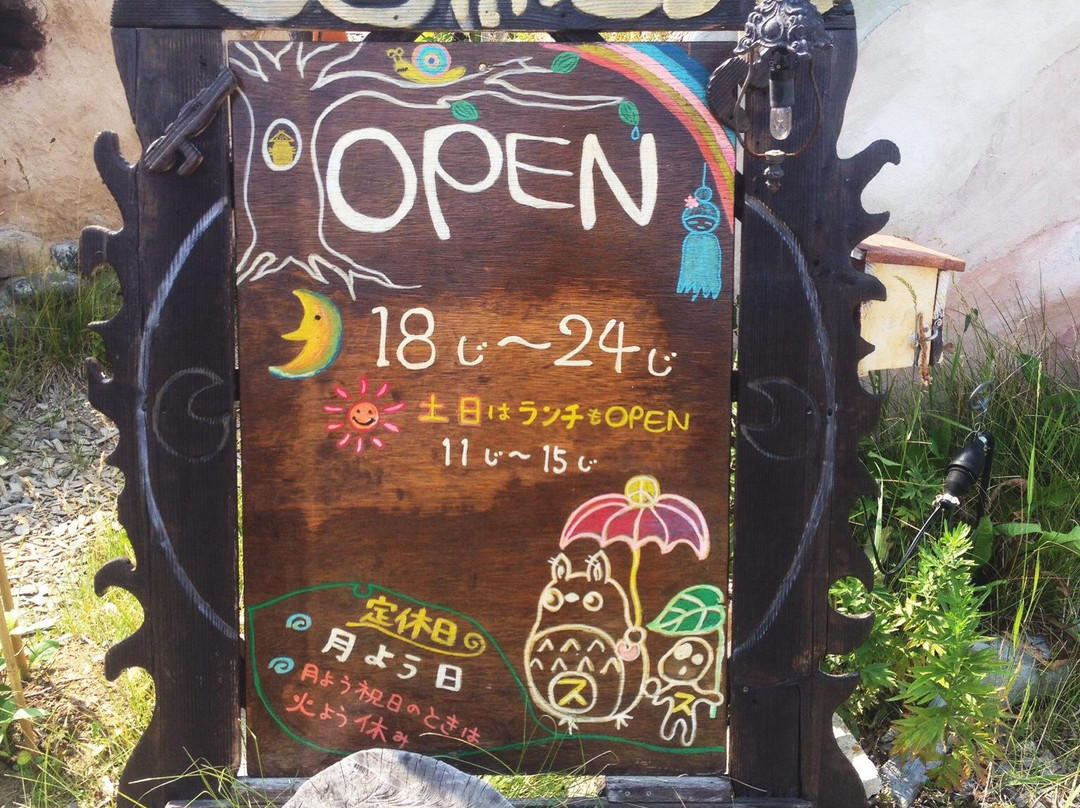 OPEN
18じ〜24じ
土日はランチもOPEN
11じ〜15じ
定休日
月よう日
月よう祝日のときは
火よう休み
ス
ス